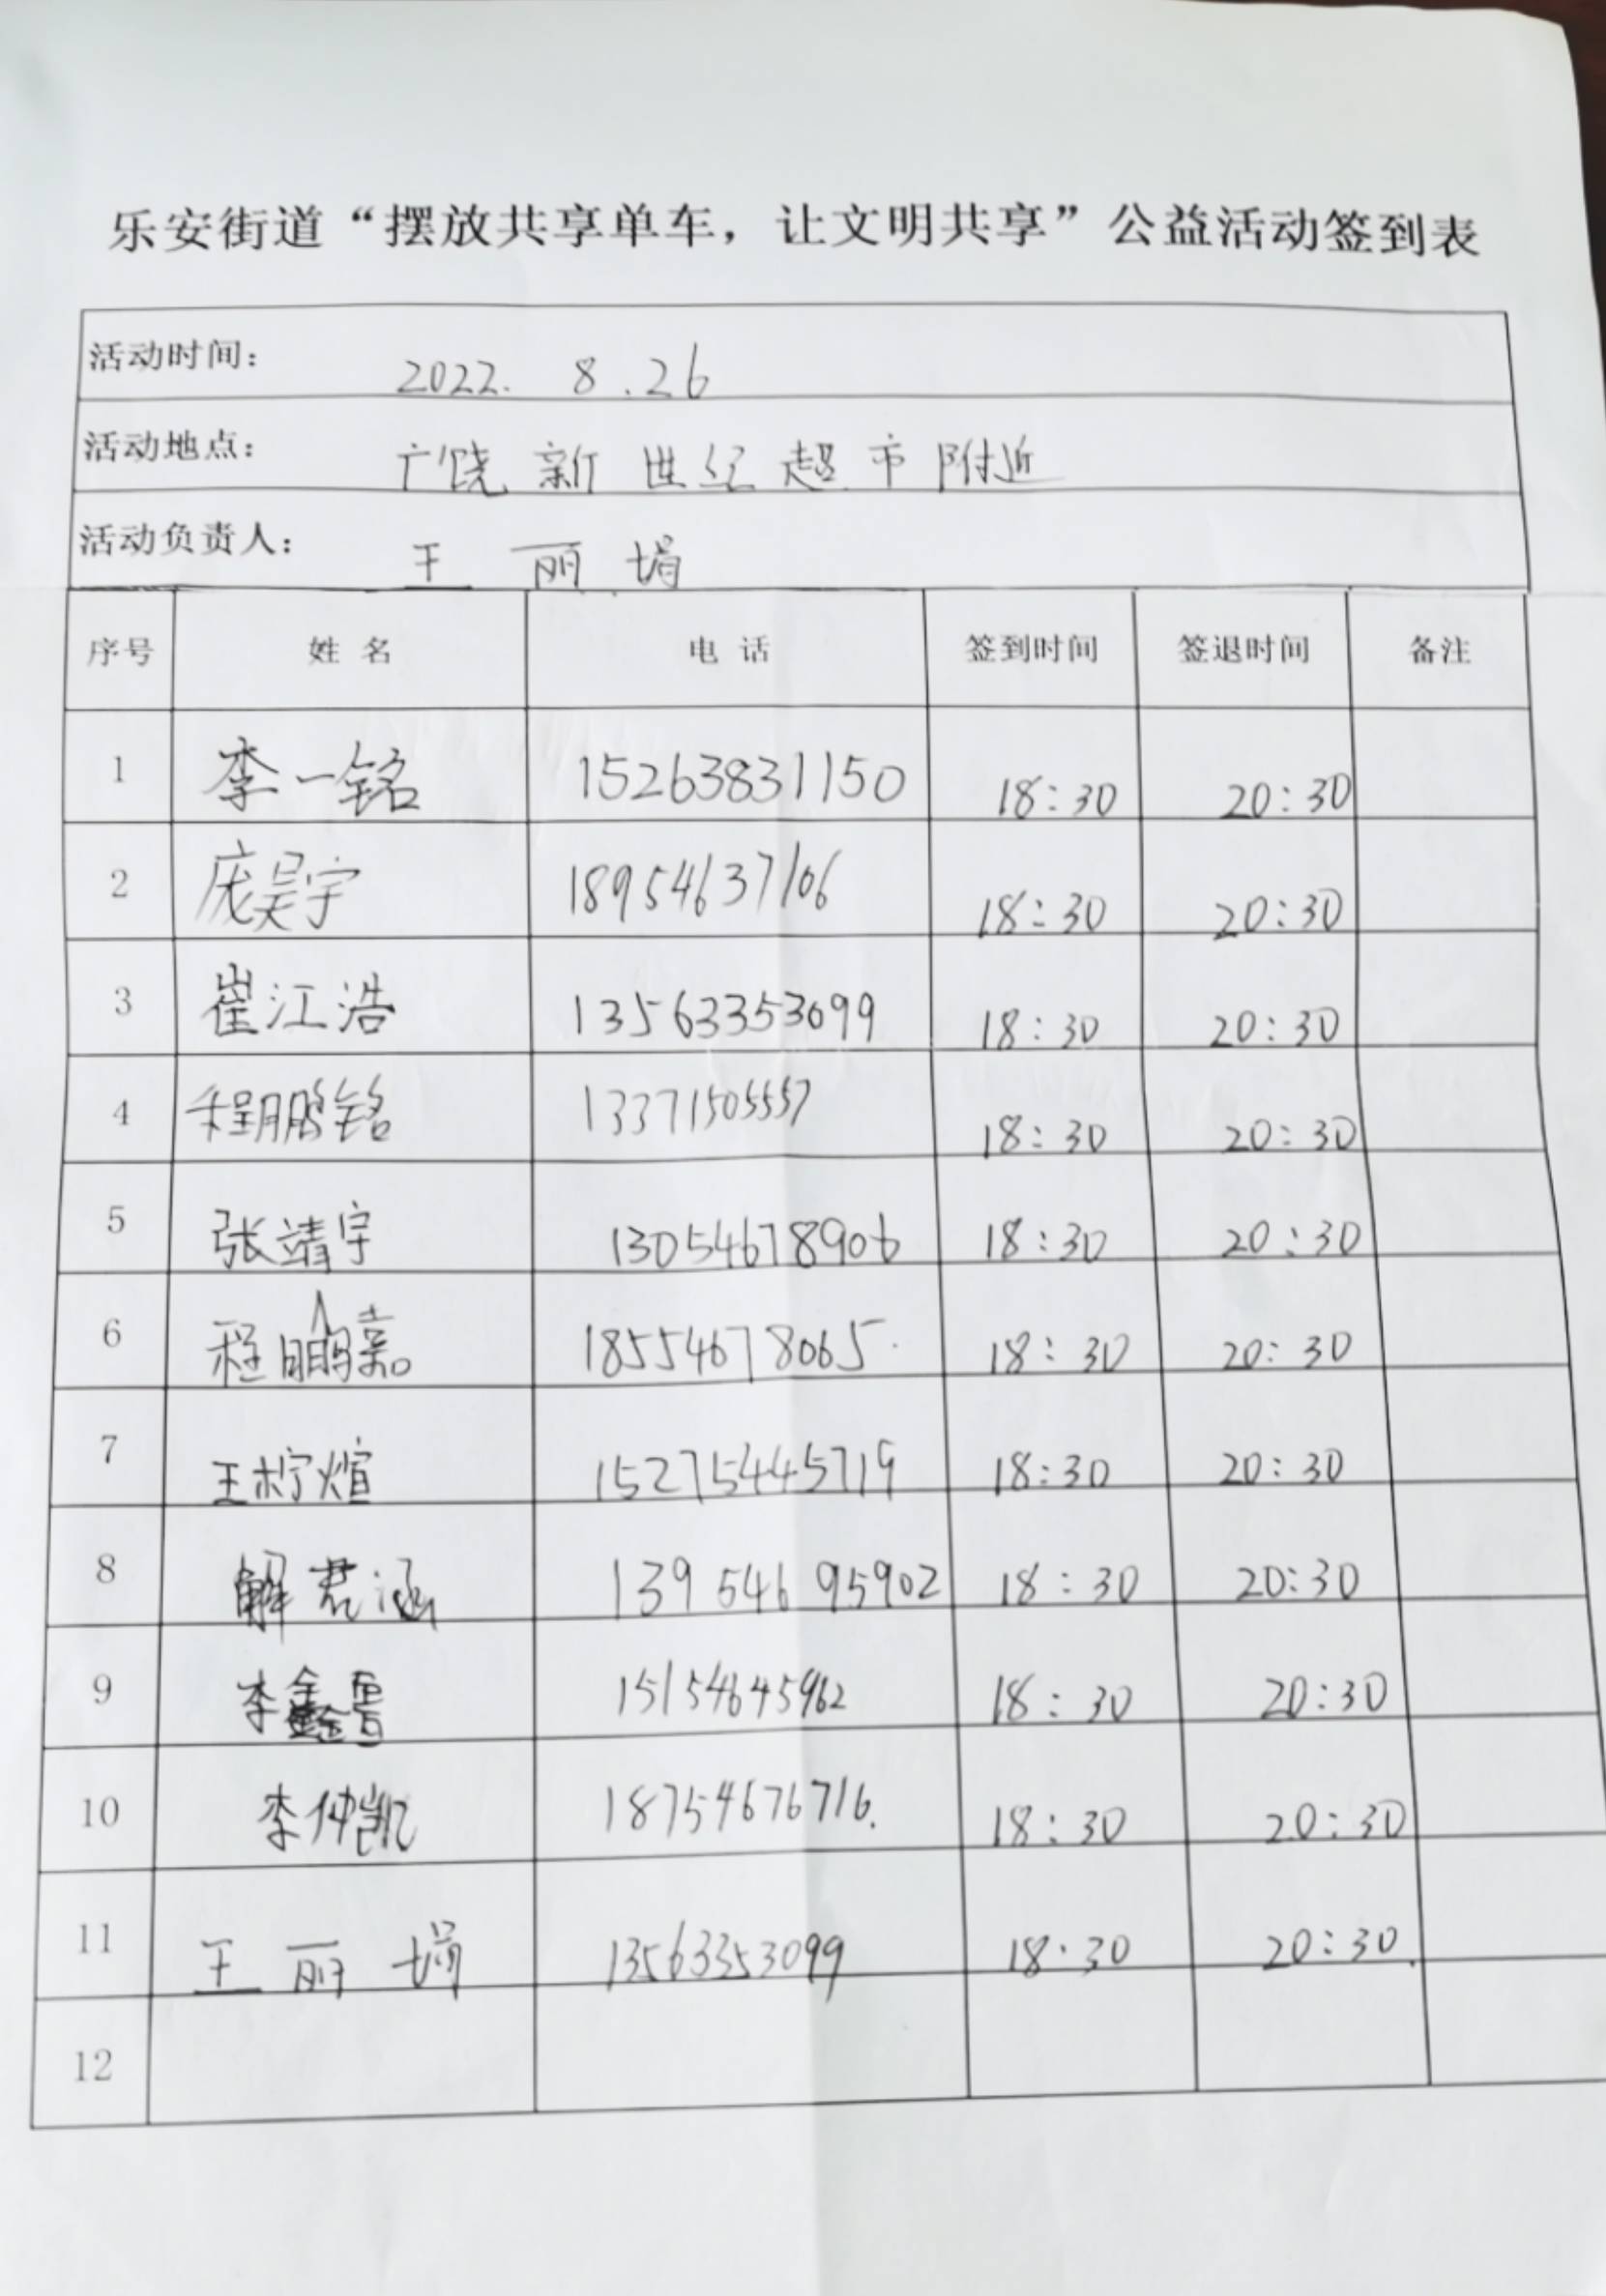 乐安街道“摆放共享单车，让文明共享”公益活动签到表
活动时间： 2022. 8.26
活动地点： 广饶新世纪超市附近
活动负责人： 王丽娟
序号 姓名 电话 签到时间 签退时间 备注
1 李一铭 15263831150 18:30 20:30
2 庞昊宇 18954637106 18:30 20:30
3 崔江浩 13563353099 18:30 20:30
4 程鹏铭 13371505557 18:30 20:30
5 张靖宇 13054678906 18:30 20:30
6 程鹏嘉 18554678065 18:30 20:30
7 王柠煊 15275445719 18:30 20:30
8 解君涵 13954695902 18:30 20:30
9 李鑫 18:30 20:30
10 李仲凯 18754676716. 18:30 20:30
11 王丽娟 13563353099 18:30 20:30.
12